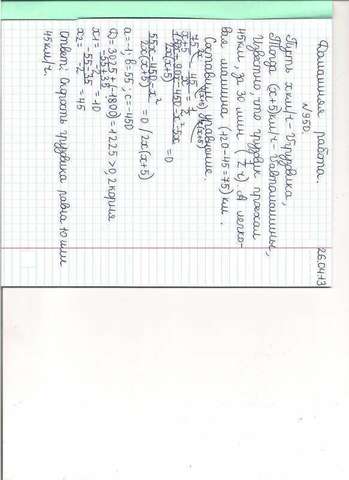 26.04.13
Домашняя работа.
№950.
Пусть x км/ч - Vгрузовика,
Тогда (x+5)км/ч - Vавтомашины,
Известно, что грузовик проехал
45км, за 30 мин (1/2 ч). А легко-
вая машина (120-45=75) км.
Составим уравнение.
75/x+5 - 45/x = 1/2
150x-90x-450-x²-5x / 2x(x+5) = 0
55x-450-x² / 2x(x+5) = 0 / 2x(x+5)
a=-1; b=55; c=-450
D=3025+(-1800)=1225>0, 2 корня
x1= -55+35 / -2 = 10
x2= -55-35 / -2 = 45
Ответ: Скорость грузовика равна 10 или
45км/ч.